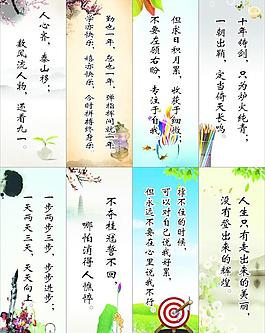 人心齐，泰山移；
数风流人物，还看九一。
勤也一年，怠也一年，弹指挥间就一年；
学亦快乐，嬉亦快乐，今时拼搏终身乐
但求日积月累，收获于细微；
不要左顾右盼，专注于自我
十年待剑，只为炉火纯青；
一朝出鞘，定当倚天长鸣。
一步两步三步，步步进步；
一天两天三天，天天向上
不夺桂冠誓不回
哪怕消得人憔悴
撑不住的时候，
可以对自己说我好累，
但永远不要在心里说我不行
人生只有走出来的美丽，
没有等出来的辉煌。